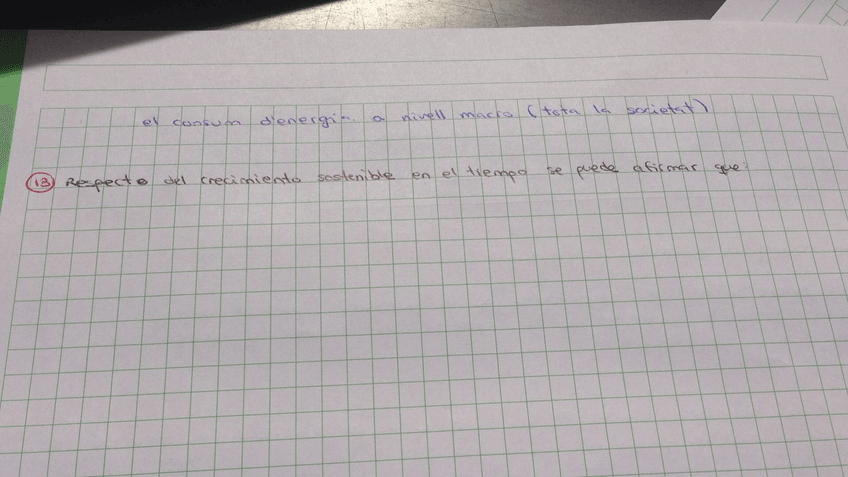 el consum d'energia a nivell macro (tota la societat)
13 Respecto del crecimiento sostenible en el tiempo se puede afirmar que: